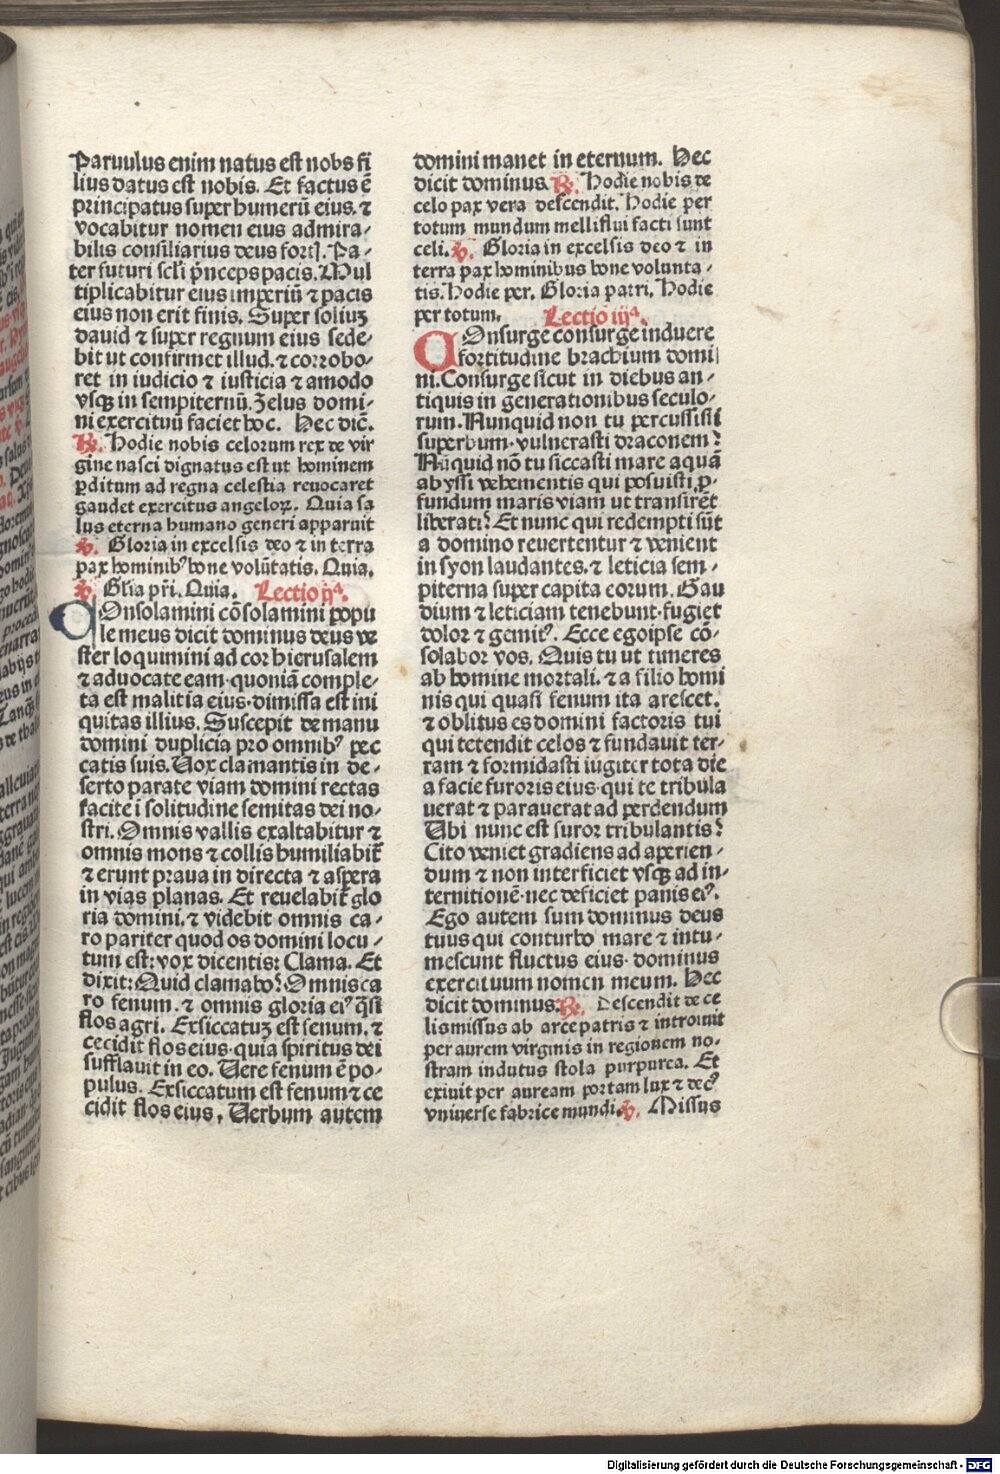 Paruulus enim natus est nobs fi
lius datus est nobis. Et factus ē
principatus super humerū eius. ⁊
vocabitur nomen eius admira⸗
bilis consiliarius deus fortꝭ. Pa⸗
ter futuri scl̄i p̄nceps pacis. Mul
tiplicabitur eius imperiū ⁊ pacis
eius non erit finis. Super soliuꝫ
dauid ⁊ super regnum eius sede⸗
bit ut confirmet illud. ⁊ corrobo⸗
ret in iudicio ⁊ iusticia ⁊ amodo
vsqꝫ in sempiternū. Zelus domi⸗
ni exercituū faciet hoc. Hec dic̄.
℟. Hodie nobis celorum rex de vir
gine nasci dignatus est ut hominem
ꝑditum ad regna celestia reuocaret
gaudet exercitus angeloꝝ. Quia sa
lus eterna humano generi apparuit
℣. Gloria in excelsis deo ⁊ in terra
pax hominibꝰ bone volūtatis. Quia.
℣. Gl̄ia pr̄i. Quia. Lectio ijª.
COnsolamini cōsolamini popu
le meus dicit dominus deus ve
ster loquimini ad cor hierusalem
⁊ aduocate eam· quoniā comple⸗
ta est malitia eius· dimissa est ini
quitas illius. Suscepit de manu
domini duplicia pro omnibꝰ pec
catis suis. Vox clamantis in de⸗
serto parate viam domini rectas
facite ī solitudine semitas dei no⸗
stri. Omnis vallis exaltabitur ⁊
omnis mons ⁊ collis humiliabit̄
⁊ erunt praua in directa ⁊ aspera
in vias planas. Et reuelabit̄ glo
ria domini. ⁊ videbit omnis ca⸗
ro pariter quod os domini locu⸗
tum est: vox dicentis: Clama. Et
dixit: Quid clamabo? Omnis ca
ro fenum. ⁊ omnis gloria eiꝰ q̄si
flos agri. Exsiccatuꝫ est fenum. ⁊
cecidit flos eius· quia spiritus dei
sufflauit in eo. Vere fenum ē po⸗
pulus. Exsiccatum est fenum ⁊ ce
cidit flos eius. Verbum autem
domini manet in eternum. Hec
dicit dominus ℟. Hodie nobis de
celo pax vera descendit. Hodie per
totum mundum melliflui facti sunt
celi. ℣. Gloria in excelsis deo ⁊ in
terra pax hominibus bone volunta⸗
tis. Hodie per. Gloria patri. Hodie
per totum. Lectio iijª.
COnsurge consurge induere
fortitudine brachium domi
ni. Consurge sicut in diebus an⸗
tiquis in generationibus seculo⸗
rum. Nunquid non tu percussisti
superbum· vulnerasti draconem?
Nūquid nō tu siccasti mare aquā
abyssi vehementis qui posuisti ꝓ⸗
fundum maris viam ut transirēt
liberati? Et nunc qui redempti sūt
a domino reuertentur ⁊ venient
in syon laudantes. ⁊ leticia sem⸗
piterna super capita eorum. Gau
dium ⁊ leticiam tenebunt· fugiet
dolor ⁊ gemitꝰ. Ecce ego ipse cō⸗
solabor vos. Quis tu ut timeres
ab homine mortali. ⁊ a filio homi
nis qui quasi fenum ita arescet.
⁊ oblitus es domini factoris tui
qui tetendit celos ⁊ fundauit ter⸗
ram ⁊ formidasti iugiter tota die
a facie furoris eius· qui te tribula
uerat ⁊ parauerat ad perdendum
Vbi nunc est furor tribulantis?
Cito veniet gradiens ad aperien⸗
dum ⁊ non interficiet vsqꝫ ad in⸗
ternitionē· nec deficiet panis eiꝰ.
Ego autem sum dominus deus
tuus qui conturbo mare ⁊ intu⸗
mescunt fluctus eius· dominus
exercituum nomen meum. Hec
dicit dominus ℟. Descendit de ce
lis missus ab arce patris ⁊ introiuit
per aurem virginis in regionem no⸗
stram indutus stola purpurea. Et
exiuit per auream portam lux ⁊ decꝰ
vniuerse fabrice mundi. ℣. Missus
Digitalisierung gefördert durch die Deutsche Forschungsgemeinschaft - DFG